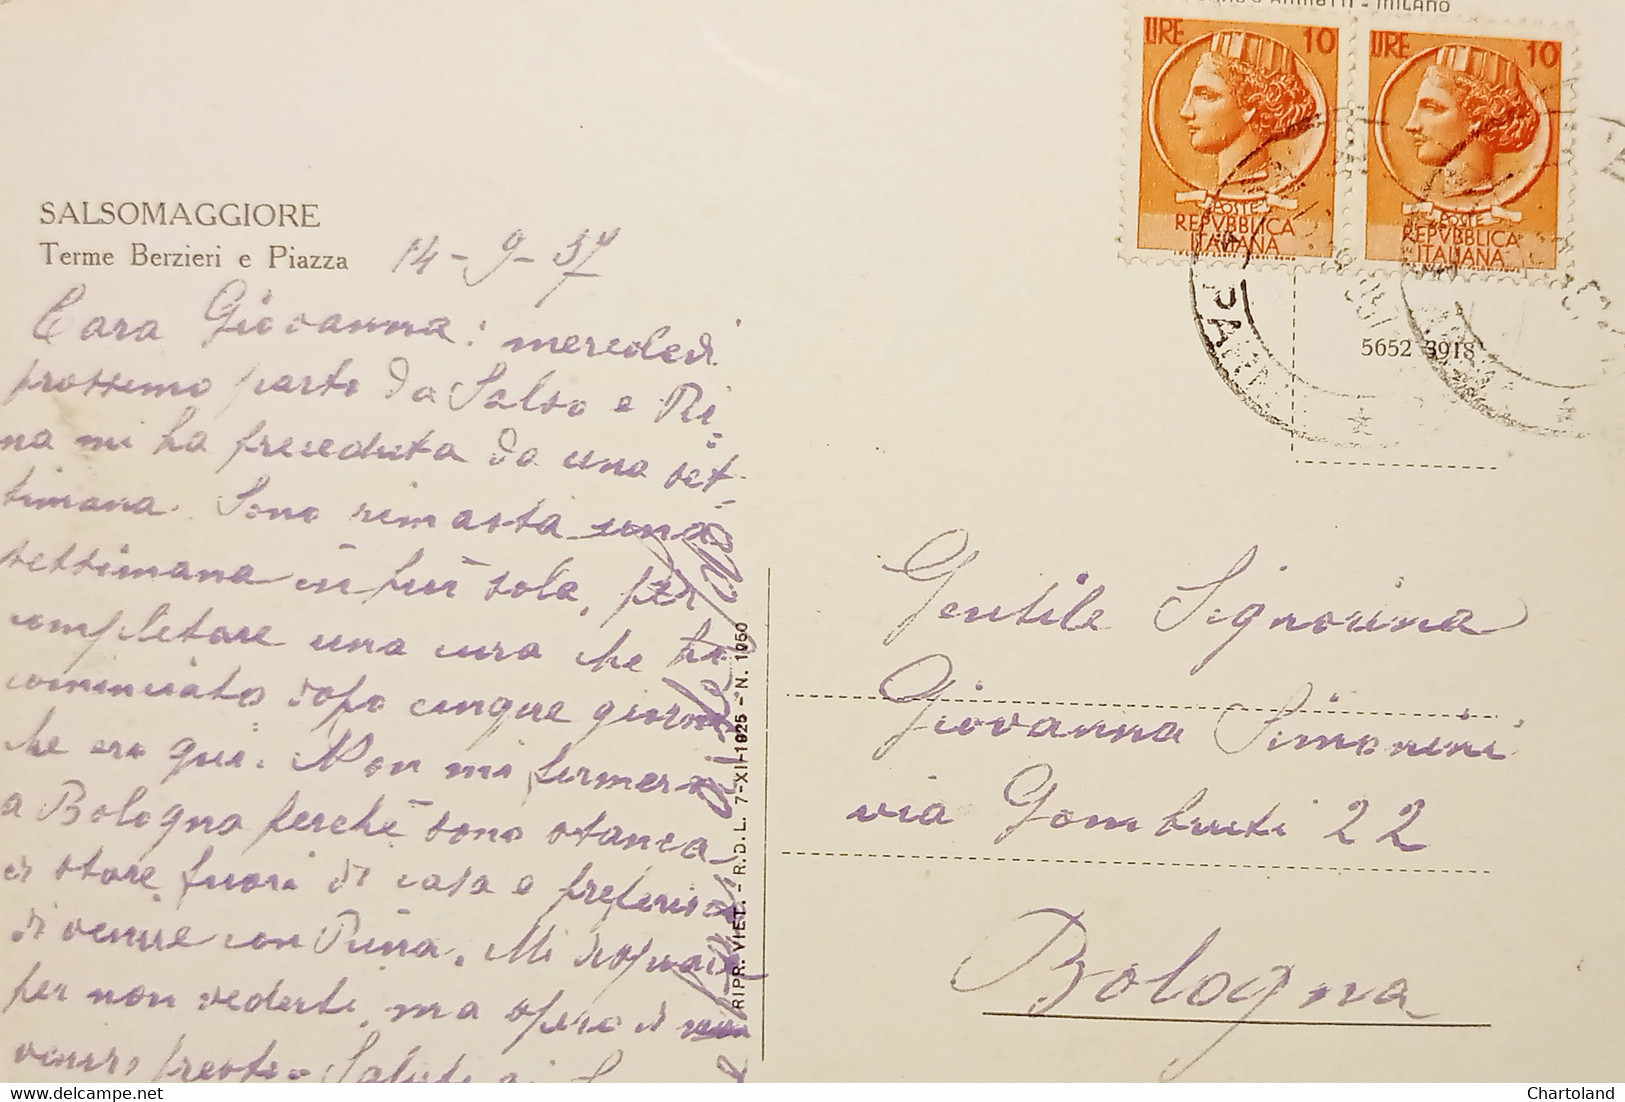 MILANO
LIRE 10
POSTE
REPVBBLICA
ITALIANA
LIRE 10
POSTE
REPVBBLICA
ITALIANA
SALSOMAGGIORE
Terme Berzieri e Piazza
14-9-57
Cara Giovanna: mercoledì
prossimo parto da Salso e Ri-
na mi ha preceduta da una set-
timana. Sono rimasta una
settimana in più sola, per
completare una cura che ho
cominciato dopo cinque giorni
che ero qui. Non mi fermerò
a Bologna perché sono stanca
di stare fuori di casa e preferisco
di venire con Rina. Mi dispiace
per non vederti, ma spero di
venirci presto. Saluti
5652 3918
Gentile Signorina
Giovanna Simonini
via Gombruti 22
Bologna
RIPR. VIET. - R.D.L. 7-XI-1925 - N. 1950
Chartoland